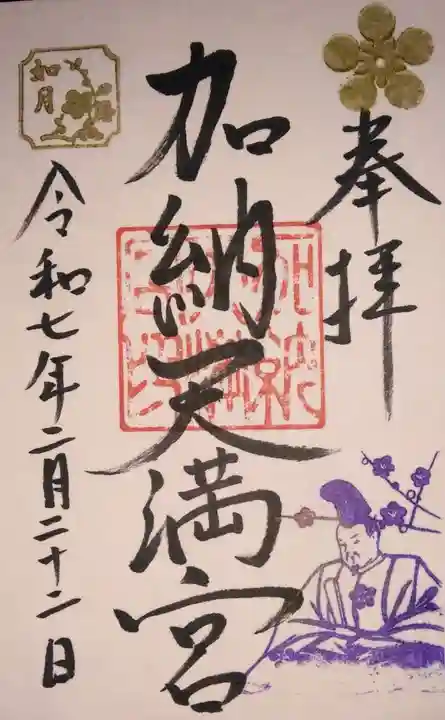 奉拝
加納天満宮
如月
令和七年二月二十二日